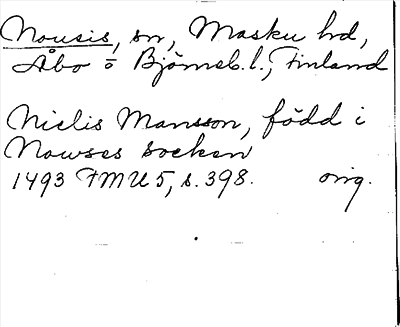 Nousis, sn, Masku hd,
Åbo o Björneb. l., Finland
Nielis Mansson, född i
Nowses socken
1493 FMU 5, s. 398. orig.